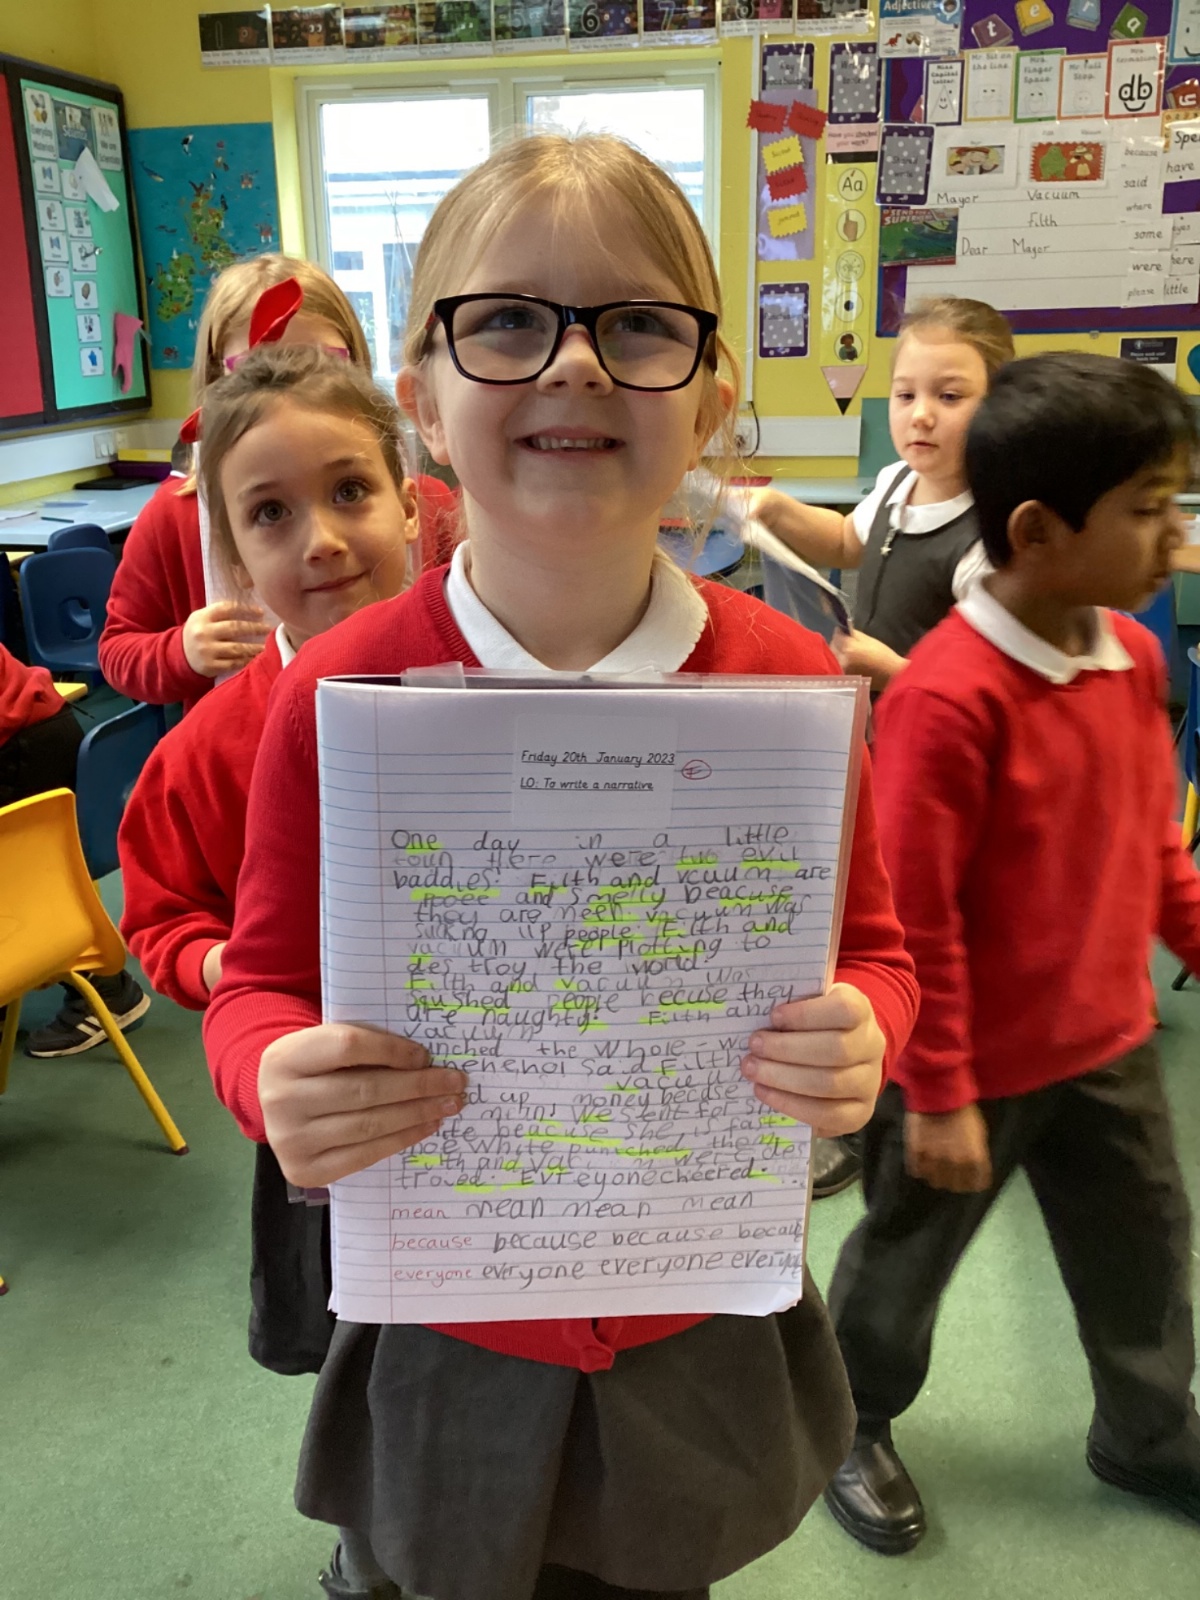 Adjectives
t e r a
Miss Capital Letter
Mr. Sit on the line
Mrs. Finger Space
Mr. Full Stop
db
Aa
Mayor Vacuum
Filth
Dear Mayor
because
said
where
some
were
please
Spe
have
eyes
here
little
6
7
Friday 20th January 2023
LO: To write a narrative
One day in a little
toun there were two evil
baddies. Filth and vcuum are
and Smelly beacuse
they are meen. vacuum was
Sucking up people. Filth and
vacuum were Plotting to
des troy the world.
Filth and vacuum was
Squshed people becuse they
are naughty. Filth and
vacuum
unched the whole - wo
hehehol Said Filth
vacuum
ed up money becase
mean. We sent for
beacuse She is fast.
White punched them
Filth and Vac m were des
troyed. Evreyone cheered.
mean mean mean mean
because because because becau
everyone everyone everyone every